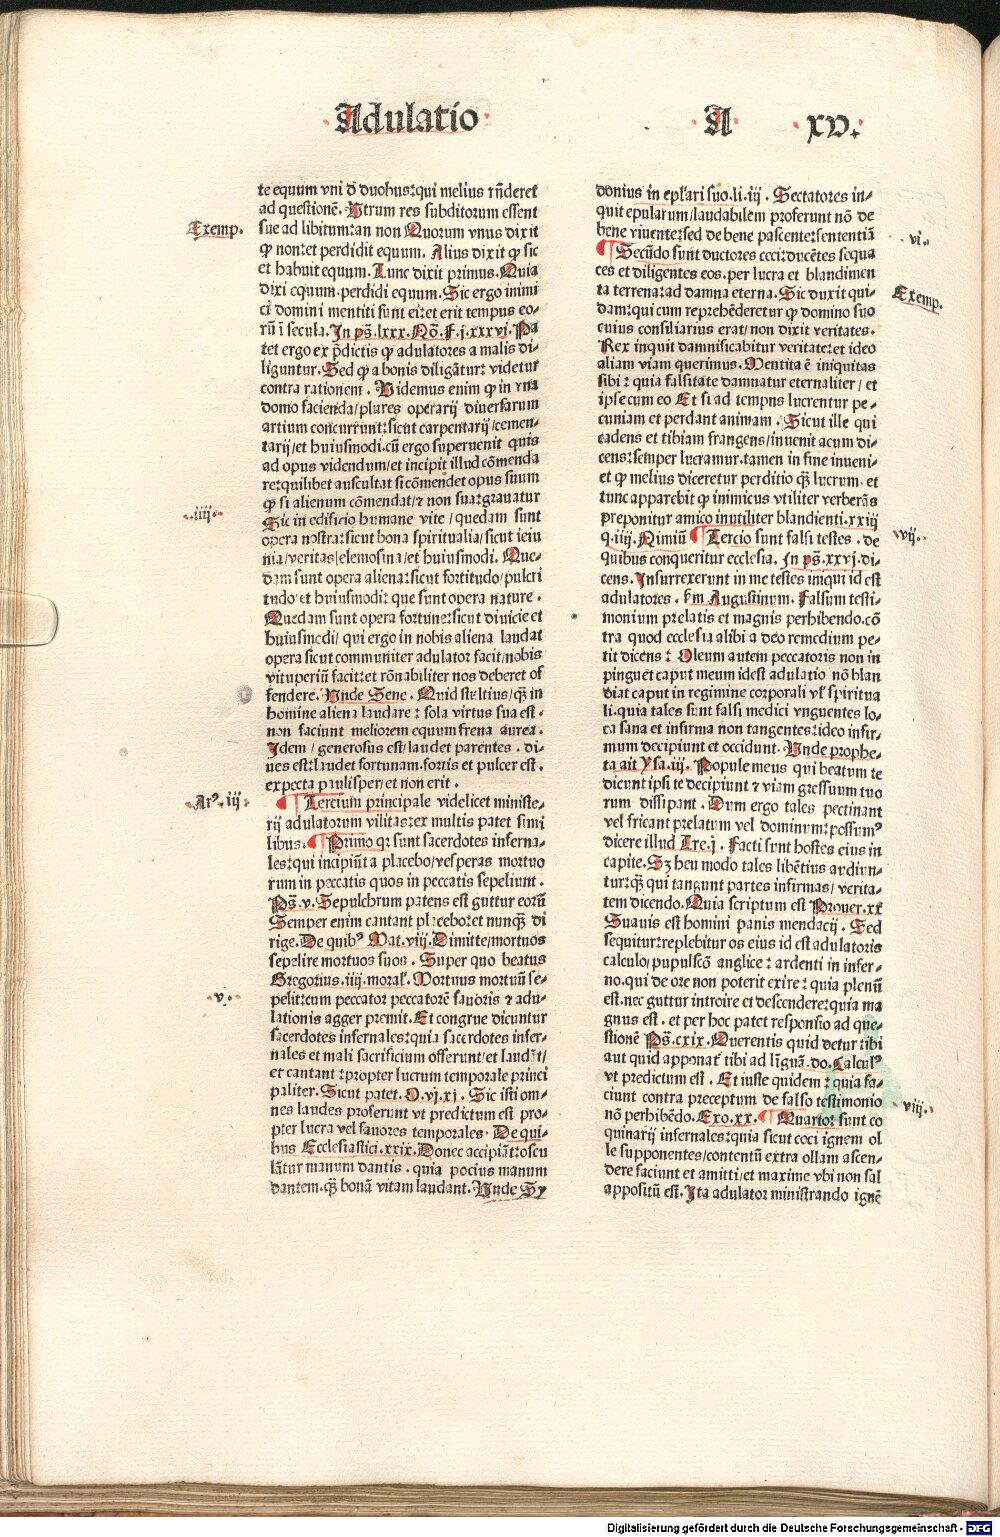 Adulatio
A xv.
te equum vni đ duobus:qui melius rñderet
ad questionē. Vtrum res subditorum essent
Exemp. sue ad libitum:an non Quorum vnus dixit
ꝙ non:et perdidit equum. Alius dixit ꝙ sic
et habuit equum. Tunc dixit primus. Quia
dixi equum perdidi equum. Sic ergo inimi
ci domini mentiti sunt ei:et erit tempus eo-
rū ī secula. In ps̄.lxxx. Nō. F.j.xxxvj. Pa
tet ergo ex p̄dictis ꝙ adulatores a malis di-
liguntur. Sed ꝙ a bonis diligātur: videtur
contra rationem. Videmus enim ꝙ in vna
domo facienda/plures operarij diuersarum
artium concurrunt:sicut carpentarij/cemen-
tarij/et huiusmodi.cū ergo superuenit quis
ad opus videndum/et incipit illud cōmenda
re:quilibet auscultat si cōmendet opus suum
ꝙ si alienum cōmendat/⁊ non sua:grauatur
.iiij. Sic in edificio humane vite/quedam sunt
opera nostra:sicut bona spiritualia/sicut ieiu
nia/veritas/elemosina/et huiusmodi. Que-
dam sunt opera aliena:sicut fortitudo/pulcri
tudo et huiusmodi: que sunt opera nature.
Quedam sunt opera fortune:sicut diuicie et
huiusmodi/qui ergo in nobis aliena laudat
opera sicut communiter adulator facit/nobis
vituperiū facit:et rōnabiliter nos deberet of
fendere. Vnde Sene. Quid stultius/ꝙ̄ in
homine aliena laudare: sola virtus sua est.
non faciunt meliorem equum frena aurea.
Idem/generosus est/laudet parentes. di-
ues est:laudet fortunam.fortis et pulcer est.
expecta paulisper/et non erit.
Arꝰ.iij. Tercium principale videlicet ministe-
rij adulatorum vilitas:ex multis patet simi
libus. Primo qꝛ sunt sacerdotes inferna-
les:qui incipiūt a placebo/vesperas mortuo
rum in peccatis quos in peccatis sepeliunt.
Ps̄.v. Sepulchrum patens est guttur eorū
Semper enim cantant placebo:et nunꝙ̄ di
rige. De quibꝰ Mat.viij. Dimitte/mortuos
sepelire mortuos suos. Super quo beatus
Gregorius.iiij.moral̄. Mortuus mortuū se-
.v. pelit:cum peccator peccatorē fauoris ⁊ adu-
lationis agger premit. Et congrue dicuntur
sacerdotes infernales:quia sacerdotes infer-
nales et mali sacrificium offerunt/et laudāt/
et cantant:propter lucrum temporale princi
paliter. Sicut patet. O.vj.xj. Sic isti om-
nes laudes proferunt vt predictum est pro-
pter lucra vel fauores temporales. De qui-
bus Ecclesiastici.xxix. Donec accipiāt:oscu
lātur manum dantis. quia pocius manum
dantem.ꝙ̄ bonā vitam laudant. Vnde Sy
donius in epl̄ari suo.li.iij. Sectatores in-
quit epularum/laudabilem proferunt nō de
bene viuente:sed de bene pascente:sententiā
vi. Secūdo sunt ductores ceci:ducētes sequa
ces et diligentes eos.per lucra et blandimen
Exemp. ta terrena:ad damna eterna. Sic duxit qui-
dam:qui cum reprehēderetur ꝙ domino suo
cuius consiliarius erat/non dixit veritates.
Rex inquit damnificabitur veritate:et ideo
aliam viam querimus. Mentita ē iniquitas
sibi: quia falsitate damnatur eternaliter/et
ipse cum eo Et si ad tempus lucrentur pe-
cuniam et perdant animam. Sicut ille qui
cadens et tibiam frangens/inuenit acum di-
cens:semper lucramur.tamen in fine inueni-
et ꝙ melius diceretur perditio ꝙ̄ lucrum.et
tunc apparebit ꝙ inimicus vtiliter verberās
preponitur amico inutiliter blandienti.xxiij
vij. q.iiij. Nimiū Tercio sunt falsi testes. de
quibus conqueritur ecclesia. In ps̄.xxvj.di-
cens. Insurrexerunt in me testes iniqui id est
adulatores. s̄m Augustinum. Falsum testi-
monium prelatis et magnis perhibendo.cō
tra quod ecclesia alibi a deo remedium pe-
tit dicens: Oleum autem peccatoris non in
pinguet caput meum idest adulatio nō blan
diat caput in regimine corporali vl̄ spiritua
li.quia tales sunt falsi medici vnguentes lo-
ca sana et infirma non tangentes:ideo infir-
mum decipiunt et occidunt. Vnde prophe-
ta ait Ysa.iij. Popule meus qui beatum te
dicunt ipsi te decipiunt ⁊ viam gressuum tuo
rum dissipant. Dum ergo tales pectinant
vel fricant prelatum vel dominum:possumꝰ
dicere illud Tre.j. Facti sunt hostes eius in
capite. Sꝫ heu modo tales libētius audiun-
tur:ꝙ̄ qui tangunt partes infirmas/verita-
tem dicendo. Quia scriptum est Prouer.xx
Suauis est homini panis mendacij. Sed
sequitur:replebitur os eius id est adulatoris
calculo/pupulscō anglice: ardenti in infer-
no.qui de ore non poterit exire: quia plenū
est.nec guttur introire et descendere:quia ma
gnus est. et per hoc patet responsio ad que-
stionē Ps̄.cxix. Querentis quid detur tibi
aut quid apponat̄ tibi ad līguā.do. Calculꝰ
vt predictum est. Et iuste quidem: quia fa-
ciunt contra preceptum de falso testimonio
viij. nō perhibēdo. Exo.xx. Quarto: sunt co
quinarij infernales:quia sicut coci ignem ol
le supponentes/contentū extra ollam ascen-
dere faciunt et amitti/et maxime vbi non sal
appositū est. Ita adulator ministrando ignē
Digitalisierung gefördert durch die Deutsche Forschungsgemeinschaft - DFG